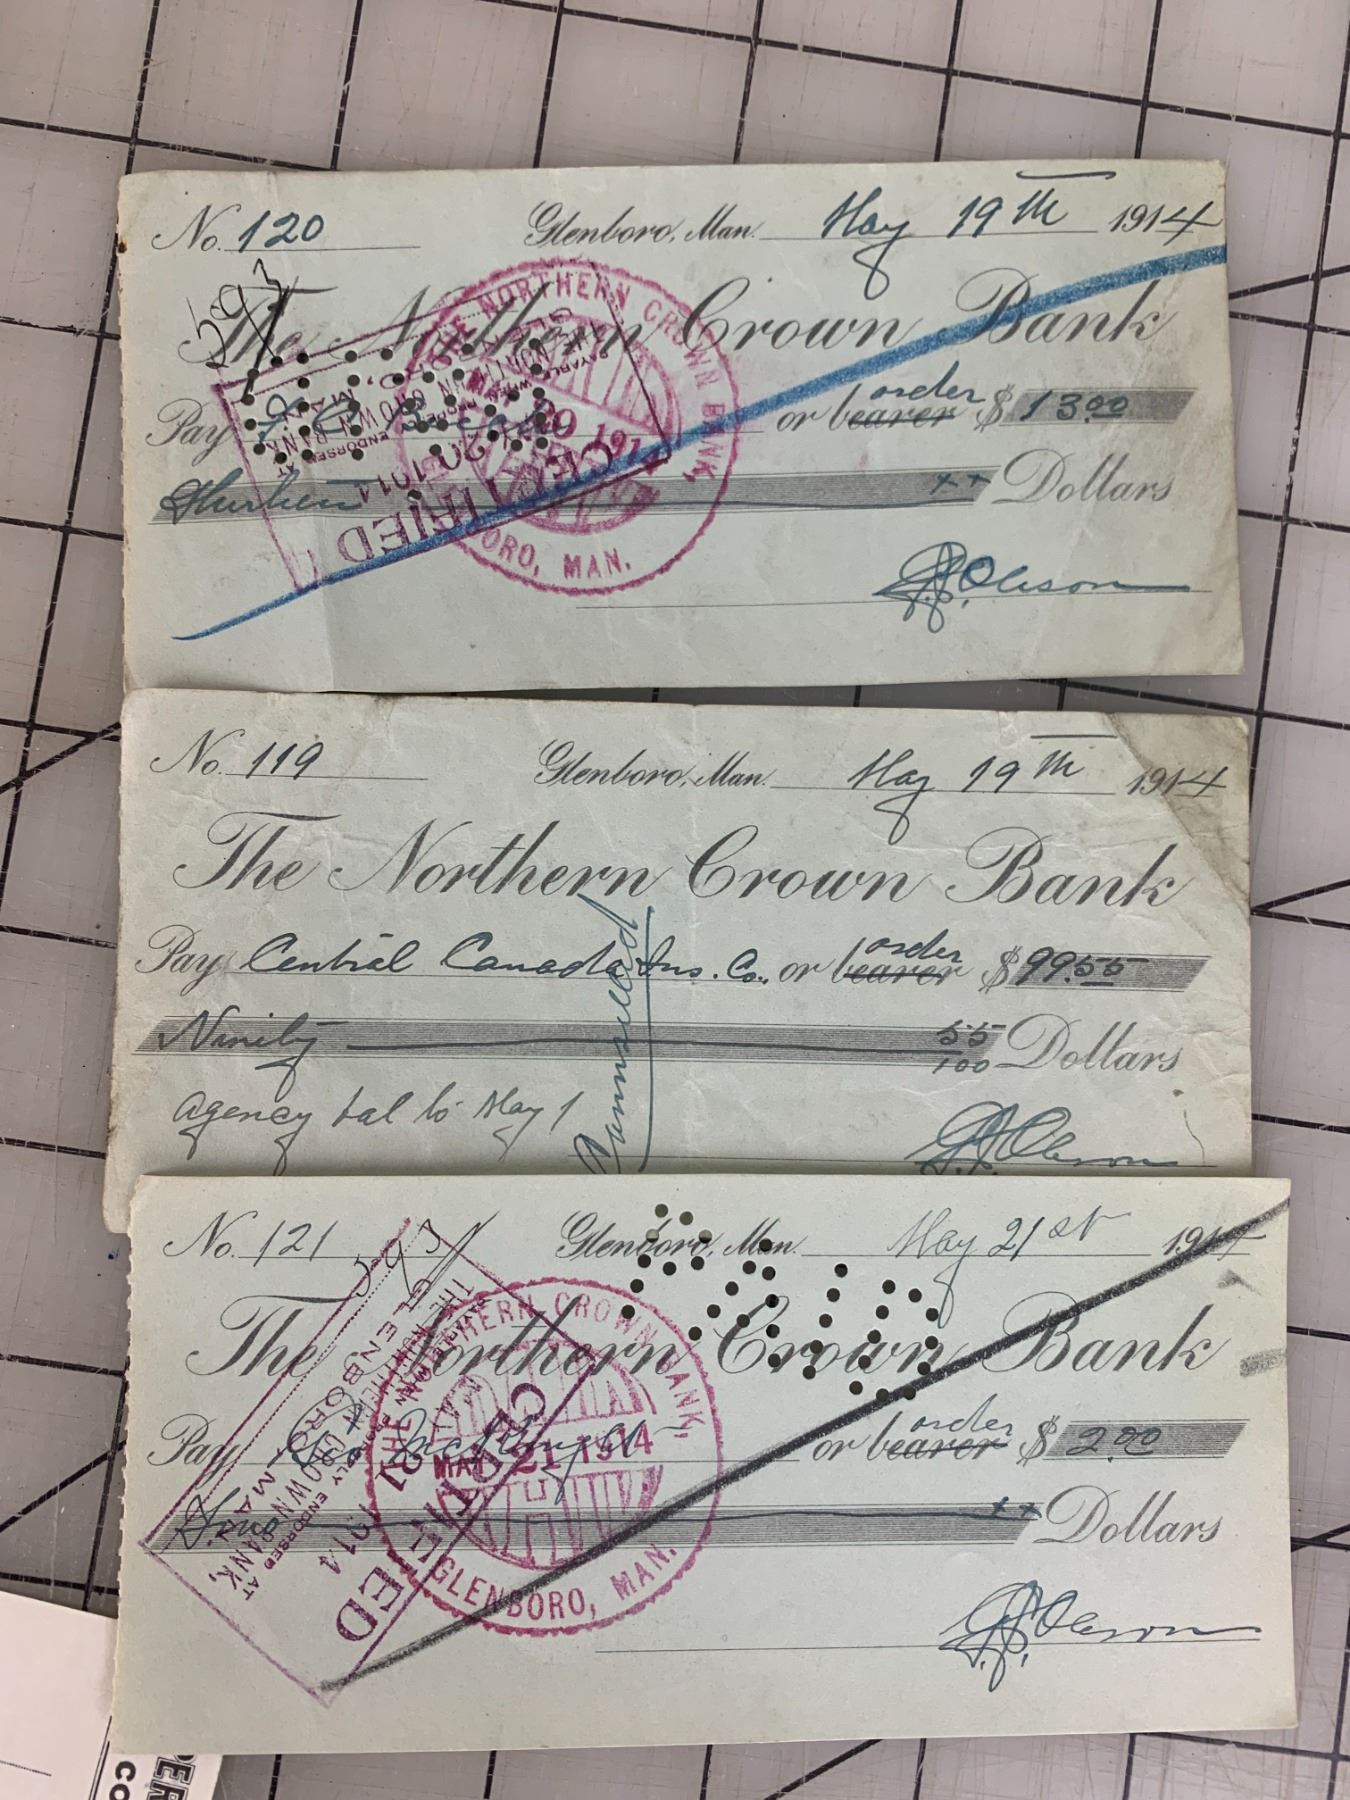 No. 120 Glenboro, Man. May 19th 1914
5293
The Northern Crown Bank
Pay or bearer order $ 13.00
Thirteen xx Dollars
G.J. Oleson
THE NORTHERN CROWN BANK,
20 1914
GLENBORO, MAN.
CERTIFIED
20 1914
PAYABLE WHEN PROPERLY ENDORSED AT
THE NORTHERN CROWN BANK
No. 119 Glenboro, Man. May 19th 1914
The Northern Crown Bank
Pay Central Canada Ins. Co. or bearer order $ 99.55
Ninity 55/100 Dollars
Agency bal to May 1
G.J. Oleson
No. 121 Glenboro, Man. May 21st 1914
The Northern Crown Bank
Pay or bearer order $ 2.00
Two xx Dollars
G.J. Oleson
THE NORTHERN CROWN BANK,
MAY 21 1914
GLENBORO, MAN.
CERTIFIED
21 1914
PAYABLE WHEN PROPERLY ENDORSED AT
THE NORTHERN CROWN BANK,
GLENBORO, MAN.